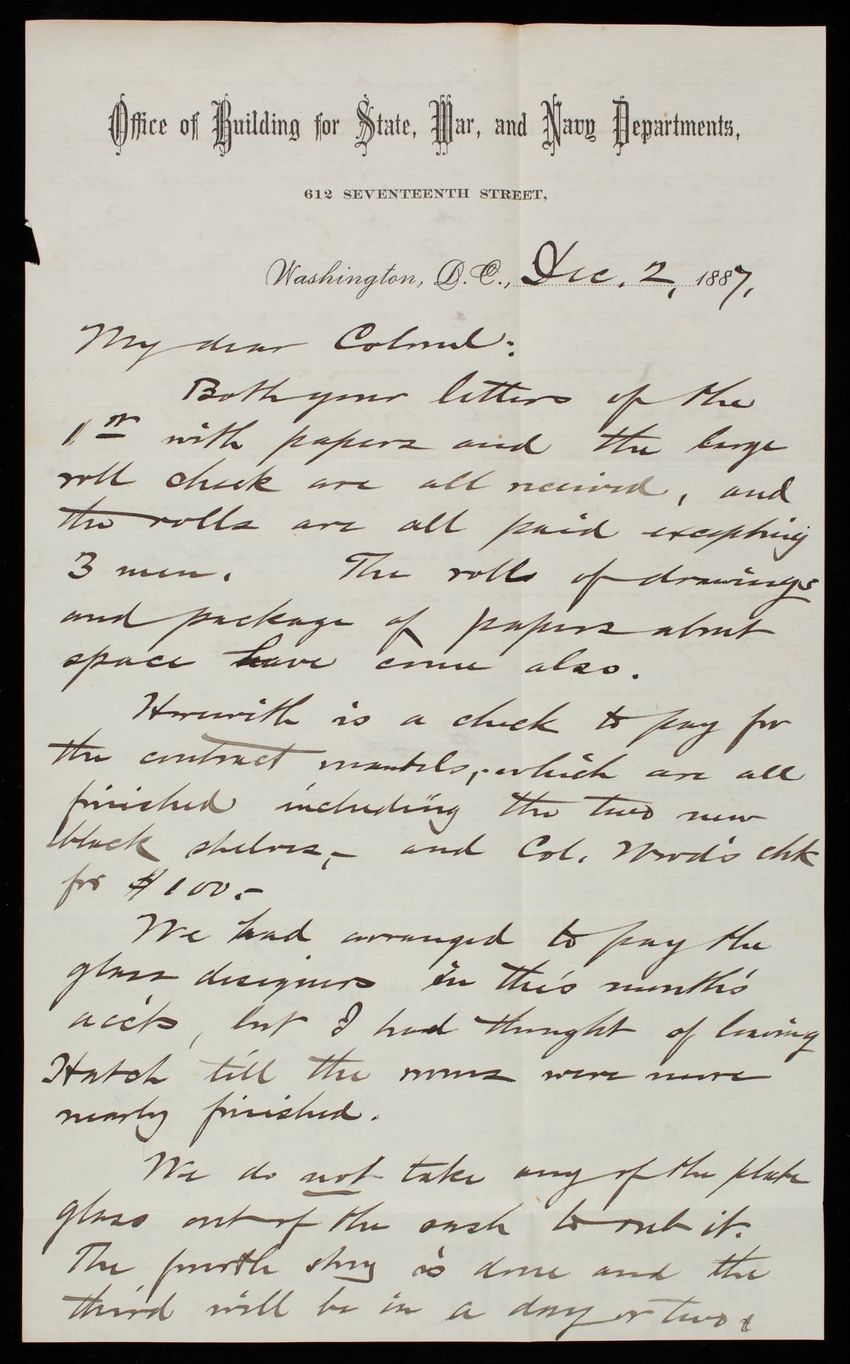 Office of Building for State, War, and Navy Departments,
612 SEVENTEENTH STREET,
Washington, D. C., Dec. 2, 1887,
My dear Colonel:
Both your letters of the
1st with papers and the large
roll check are all received, and
the rolls are all paid excepting
3 men. The rolls of drawings
and package of papers about
space have come also.
Herewith is a check to pay for
the contract mantels,-which are all
finished including the two new
black shelves,- and Col. Wood's chk
for $100.-
We had arranged to pay the
glass designers in this month's
acc'ts, but I had thought of leaving
Hatch till the rooms were more
nearly finished.
We do not take any of the plate
glass out of the sash to rub it.
The fourth story is done and the
third will be in a day or two;